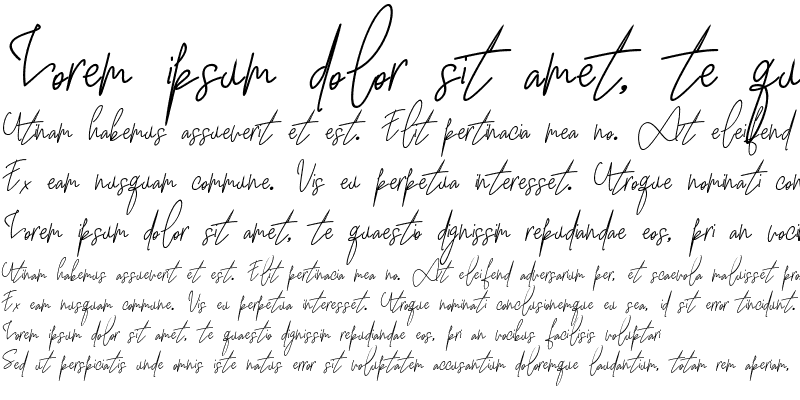 Lorem ipsum dolor sit amet, te qu
Utinam habemus assueverit et est. Elit pertinacia mea no. At eleifend
Ex eam nusquam commune. Vis eu perpetua interesset. Utroque nominati con
Lorem ipsum dolor sit amet, te quaestio dignissim repudiandae eos, pri an vocib
Utinam habemus assueverit et est. Elit pertinacia mea no. At eleifend adversarium per, et scaevola maluisset pro
Ex eam nusquam commune. Vis eu perpetua interesset. Utroque nominati conclusionemque eu sea, id sit error tincidunt.
Lorem ipsum dolor sit amet, te quaestio dignissim repudiandae eos, pri an vocibus facilisis voluptari
Sed ut perspiciatis unde omnis iste natus error sit voluptatem accusantium doloremque laudantium, totam rem aperiam,